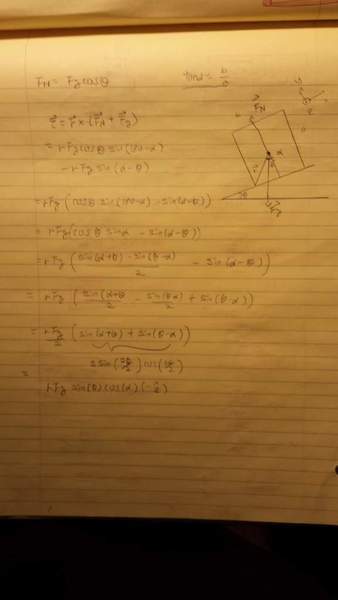 F_N = F_g cosθ
tanα = b/a
τ⃗ = r⃗ × (F⃗_N + F⃗_g)
= rF_g cosθ sin(180-α)
- rF_g sin(α-θ)
= rF_g (cosθ sin(180-α) - sin(α-θ))
= rF_g (cosθ sinα - sin(α-θ))
= rF_g (sin(α+θ) - sin(θ-α)/2 - sin(α-θ))
= rF_g (sin(α+θ)/2 - sin(θ-α)/2 + sin(θ-α))
= rF_g/2 (sin(α+θ) + sin(θ-α))
2 sin(2θ/2) cos(2α/2)
=
rF_g sin(θ) cos(α)
F_N
α
r
θ
F_g